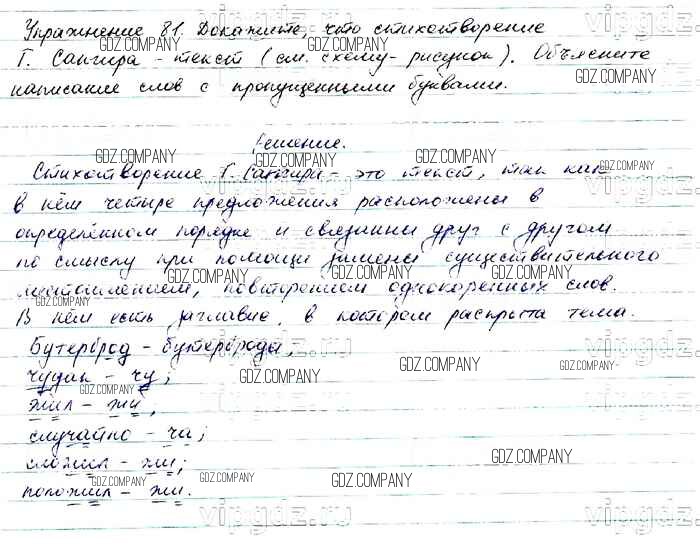 Упражнение 81. Докажите, что стихотворение
Г. Сапгира - текст (см. схему - рисунок). Объясните
написание слов с пропущенными буквами.
Решение.
Стихотворение Г. Сапгира - это текст, так как
в нём четыре предложения расположены в
определённом порядке и связаны друг с другом
по смыслу при помощи замены существительного
местоимением, повторением однокоренных слов.
В нём есть заглавие, в котором раскрыта тема.
Бутерброд - бутерброды,
чудак - чу;
жил - жи,
случайно - ча;
сложил - жи;
положил - жи.
GDZ.COMPANY
vipgdz.ru